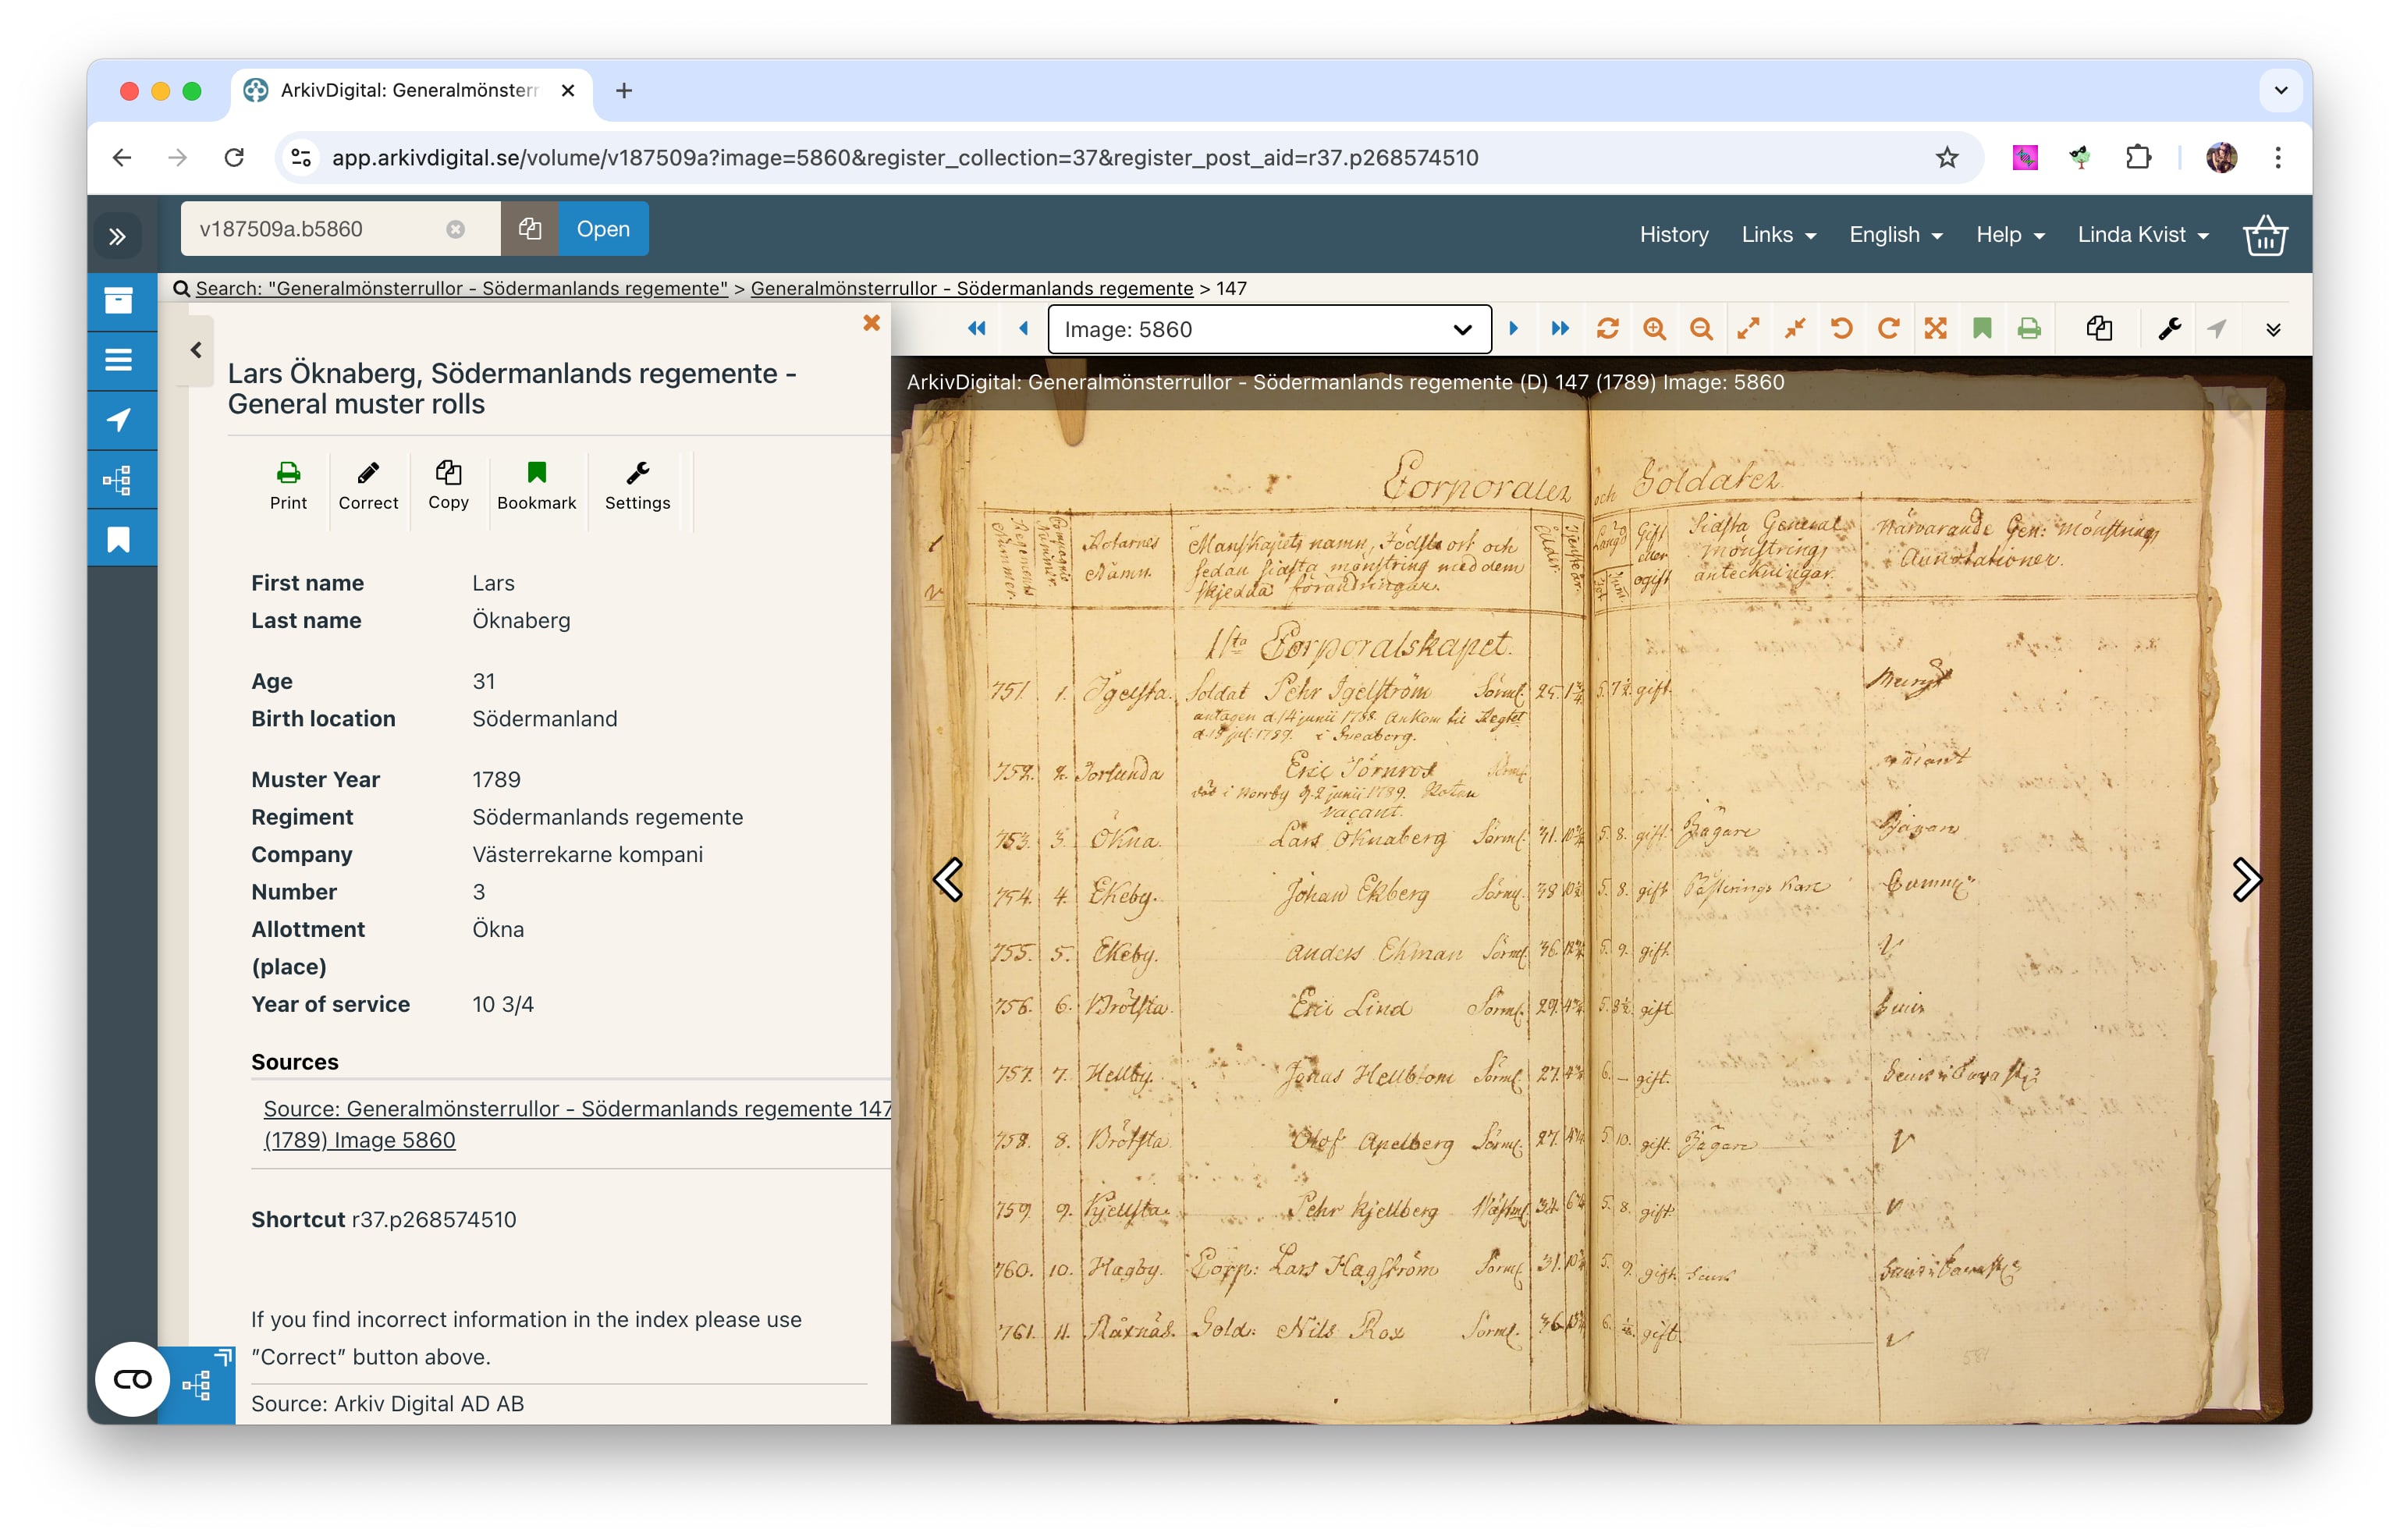 ArkivDigital: Generalmönsterr
app.arkivdigital.se/volume/v187509a?image=5860&register_collection=37&register_post_aid=r37.p268574510
v187509a.b5860
Open
History
Links
English
Help
Linda Kvist
Search: "Generalmönsterrullor - Södermanlands regemente" > Generalmönsterrullor - Södermanlands regemente > 147
Image: 5860
Lars Öknaberg, Södermanlands regemente -
General muster rolls
Print
Correct
Copy
Bookmark
Settings
First name Lars
Last name Öknaberg
Age 31
Birth location Södermanland
Muster Year 1789
Regiment Södermanlands regemente
Company Västerrekarne kompani
Number 3
Allotment Ökna
(place)
Year of service 10 3/4
Sources
Source: Generalmönsterrullor - Södermanlands regemente 147
(1789) Image 5860
Shortcut r37.p268574510
If you find incorrect information in the index please use
"Correct" button above.
Source: Arkiv Digital AD AB
ArkivDigital: Generalmönsterrullor - Södermanlands regemente (D) 147 (1789) Image: 5860
Corporaler och Soldater
Regements Nummer.
Compagnie Nummer.
Rotarnes
Namn.
Manskapets namn, Födslo ort och
sedan sidsta mönstring med dem
skjedda förändringar.
Ålder.
Tjenste år.
Längd
Gift
eller
ogift
Sidsta General
Mönstrings
anteckningar.
Närvarande Gen: Mönstrings
Annotationer.
1sta Corporalskapet.
751 1. Igelsta. Soldat Pehr Igelström Sörml. 25. 5. 7½ gift.
antagen d. 14 junii 1788. Ankom till Regtet
1789. i Sveaborg.
752. 2. Torlunda Eric Törnros Sörml.
död i Norrby d. 2 junii 1789. Roten
vacant.
vacant
753. 3. Ökna. Lars Öknaberg Sörml. 31. 10¾ 5. 8. gift.
754. 4. Ekeby. Johan Ekberg Sörml. 38 5. 8. gift
755. 5. Ekeby. Anders Ekman Sörml. 36. 5. 9. gift.
756. 6. Brötsta. Eric Lind Sörml. 29. 5. 8½ gift
757. 7. Hellby. Jonas Hellbom Sörml. 27. 6. – gift.
758. 8. Brötsta. Olof Apelberg Sörml. 27. 5. 10. gift.
759. 9. Kjellsta. Pehr Kjellberg Wästml. 34. 5. 8. gift.
760. 10. Hagby. Corp: Lars Hagström Sörml. 31. 5. 9. gift
761. 11. Råxnäs. Sold: Nils Rox Sörml. 36. 6. gift.
581